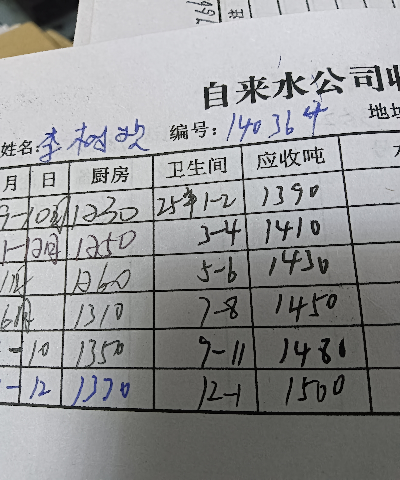 自来水公司收
姓名:李树欢 编号:140364 地址
月 日 厨房 卫生间 应收吨
9-10月 1230 25年1-2 1390
11-12月 1250 3-4 1410
1260 5-6 1430
6月 1310 7-8 1450
-10 1350 9-11 1480
-12 1370 12-1 1500